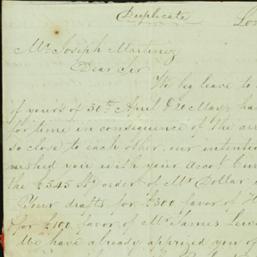 Duplicate Lon
Mr Joseph Martinez
Dear Sir
We beg leave to
of yours of 30th April & 20 May, ha
for time in consequence of the arr
so close to each other, our intenti
nished you with your Acct Curr
the £345 No order of Mr Dollar
Your drafts for £300 favor of H
for £100 favor of Mr James
We have already apprized you of